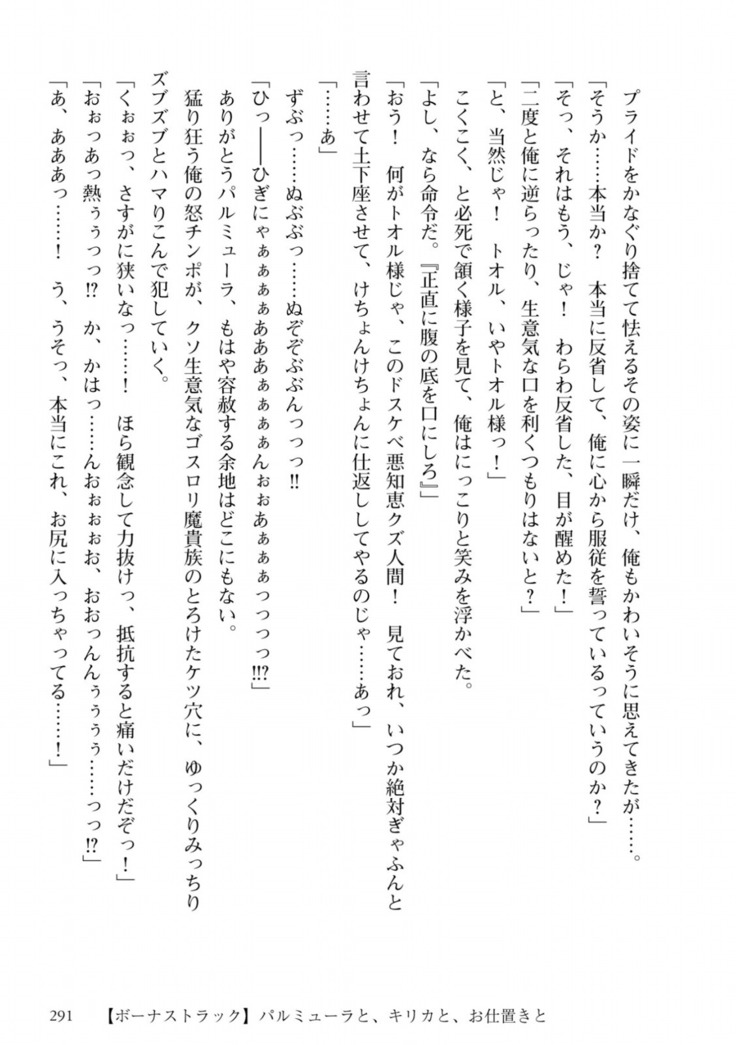 プライドをかなぐり捨てて怯えるその姿に一瞬だけ、俺もかわいそうに思えてきたが……。
「そうか……本当か?　本当に反省して、俺に心から服従を誓っているっていうのか?」
「そっ、それはもう、じゃ!　わらわ反省した、目が醒めた!」
「二度と俺に逆らったり、生意気な口を利くつもりはないと?」
「と、当然じゃ!　トオル、いやトオル様っ!」
こくこく、と必死で頷く様子を見て、俺はにっこりと笑みを浮かべた。
「よし、なら命令だ。『正直に腹の底を口にしろ』」
「おう!　何がトオル様じゃ、このドスケベ悪知恵クズ人間!　見ておれ、いつか絶対ぎゃふんと
言わせて土下座させて、けちょんけちょんに仕返ししてやるのじゃ……あっ」
「……あ」
ずぶっ……ぬぶぶっ……ぬぞぞぶぶんっっっ!!
「ひっ――ひぎにゃぁぁぁぁあああぁぁぁぁんぉぉあぁぁぁっっっっ!!?」
ありがとうパルミューラ、もはや容赦する余地はどこにもない。
猛り狂う俺の怒チンポが、クソ生意気なゴスロリ魔貴族のとろけたケツ穴に、ゆっくりみっちり
ズブズブとハマりこんで犯していく。
「くぉぉっ、さすがに狭いなっ……!　ほら観念して力抜けっ、抵抗すると痛いだけだぞっ!」
「おぉっあっ熱ぅぅっっ!?　か、かはっ……んおぉぉぉお、おおっんんぅぅぅぅ……っっ!?」
「あ、あああっ……!　う、うそっ、本当にこれ、お尻に入っちゃってる……!」
291　【ボーナストラック】パルミューラと、キリカと、お仕置きと